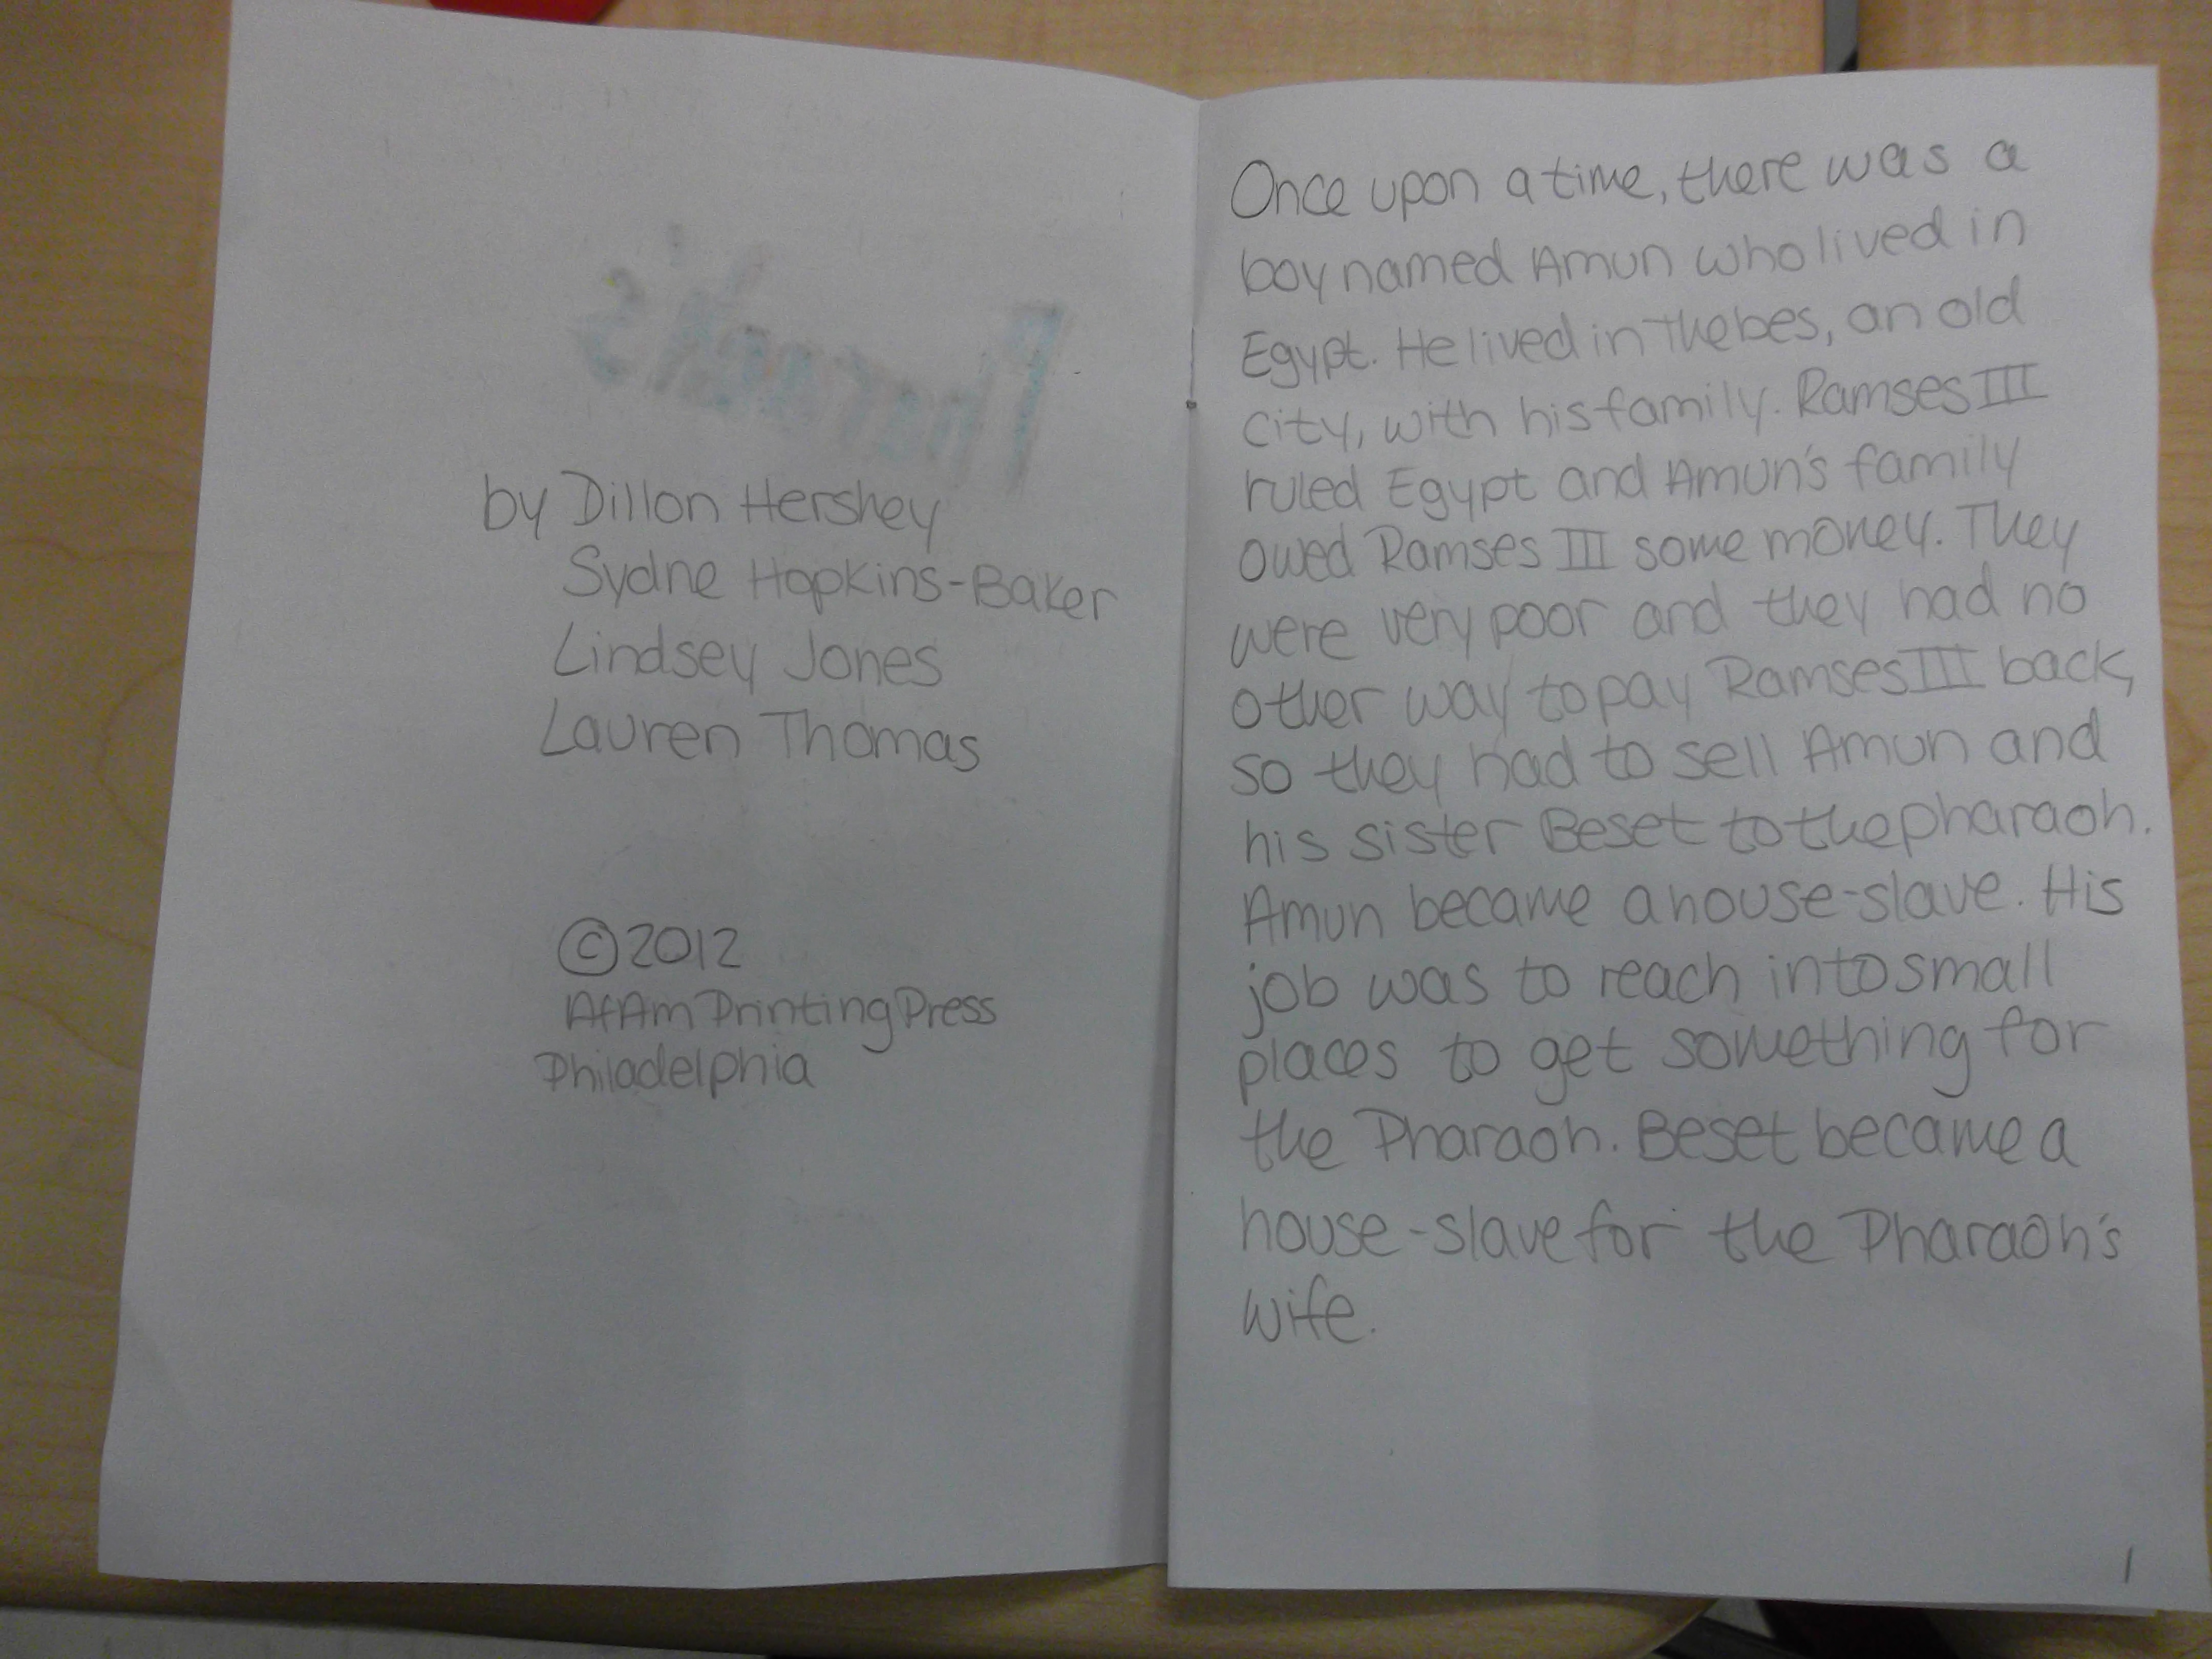 Pharaoh's
by Dillon Hershey
Sydne Hopkins-Baker
Lindsey Jones
Lauren Thomas
©2012
AfAm Printing Press
Philadelphia
Once upon a time, there was a
boy named Amun who lived in
Egypt. He lived in Thebes, an old
city, with his family. Ramses III
ruled Egypt and Amun's family
owed Ramses III some money. They
were very poor and they had no
other way to pay Ramses III back,
so they had to sell Amun and
his sister Beset to the pharaoh.
Amun became a house-slave. His
job was to reach into small
places to get something for
the Pharaoh. Beset became a
house-slave for the Pharaoh's
wife.
1